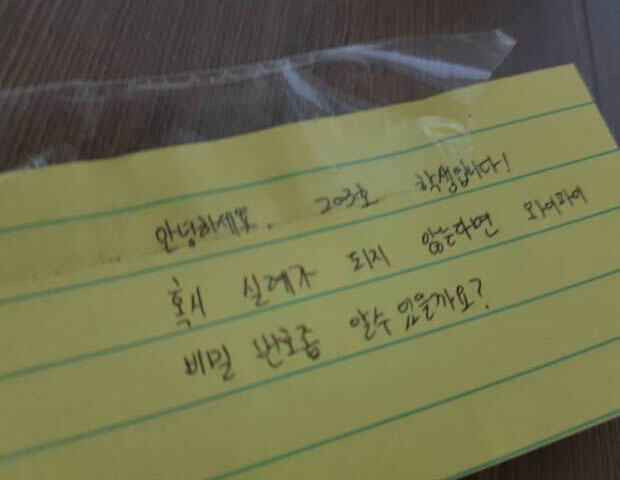 안녕하세요. 203호 학생입니다!
혹시 실례가 되지 않는다면 와이파이
비밀 번호좀 알수 있을까요?